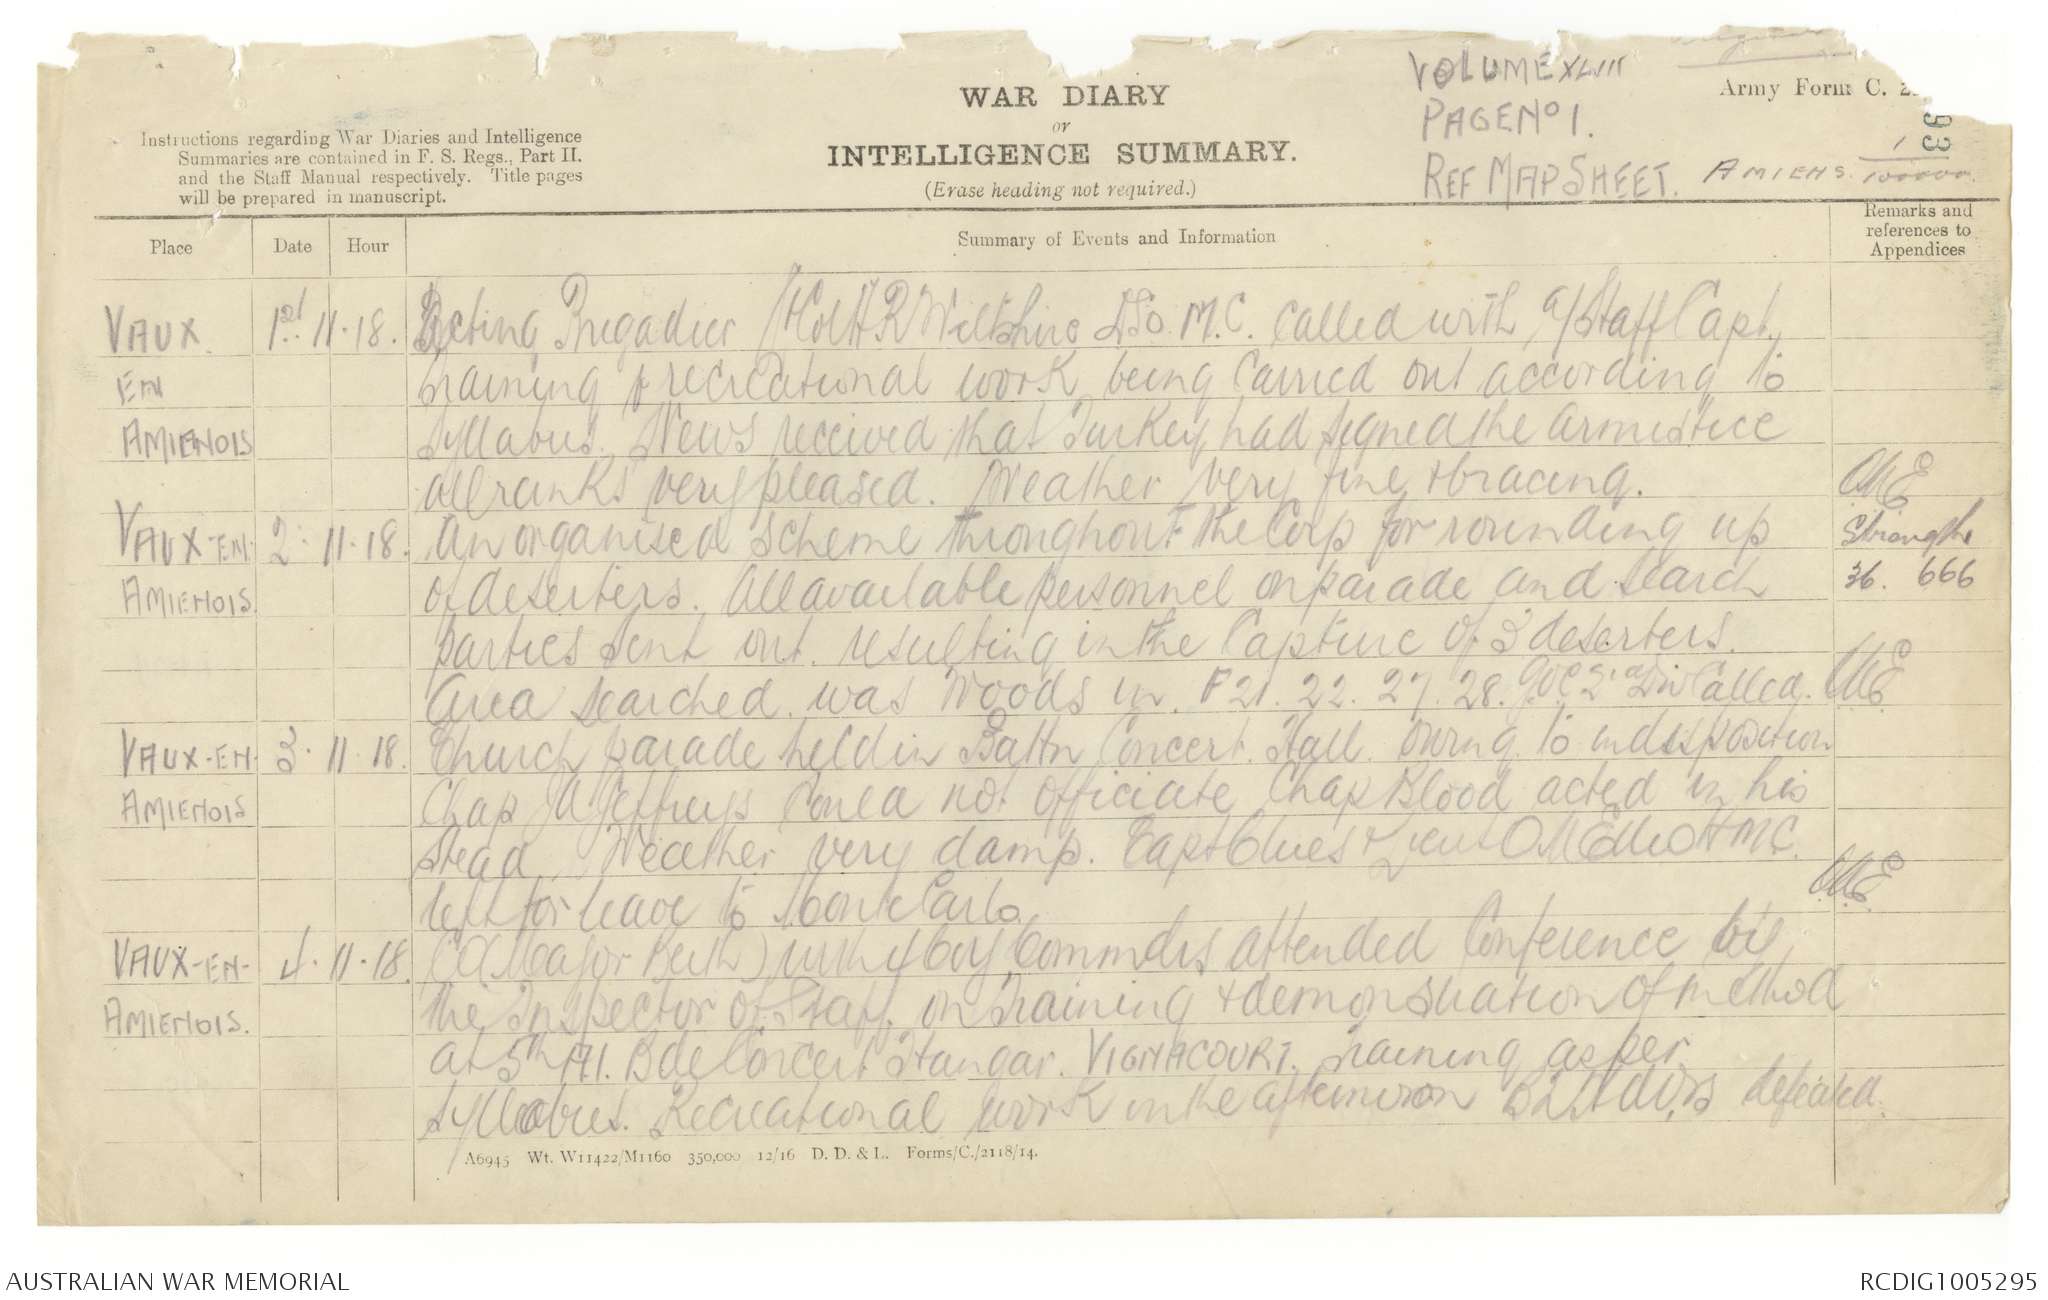 VOLUME XLIII
PAGE No 1.
REF MAP SHEET. AMIENS. 1/100000.
Army Form C. 2
93
WAR DIARY
or
INTELLIGENCE SUMMARY.
(Erase heading not required.)
Instructions regarding War Diaries and Intelligence
Summaries are contained in F. S. Regs., Part II.
and the Staff Manual respectively. Title pages
will be prepared in manuscript.
Place
Date
Hour
Summary of Events and Information
Remarks and
references to
Appendices
VAUX 1st. 11.18. Acting Brigadier Wiltshire DSO. M.C. called with a/Staff Capt,
EN training & recreational work being carried out according to
AMIENOIS syllabus. News received that Turkey had signed the armistice
all ranks very pleased. Weather very fine & bracing. OME
VAUX-EN- 2. 11.18. An organised scheme throughout the Corp for rounding up Strength
AMIENOIS. of deserters. All available personnel on parade and search 36. 666
parties sent out. resulting in the capture of 3 deserters.
Area searched was Woods in F 21. 22. 27. 28. GOC 2nd Div Called. OME
VAUX-EN- 3. 11.18. Church parade held in Battn Concert Hall. Owing to indisposition
AMIENOIS Chap JA Jeffreys could not officiate Chap Blood acted in his
stead. Weather very damp. Capt Clues & Lieut OM Elliott MC.
left for leave to Monte Carlo. OME
VAUX-EN- 4. 11.18. Major with 4 Coy Commdrs attended Conference by
AMIENOIS. the Inspector of Staff on training & demonstration of method
at 5th A.I. Bde Concert Hangar. VIGNACOURT. Training as per
syllabus. Recreational work in the afternoon defeated.
A6945 Wt. W11422/M1160 350,000 12/16 D. D. & L. Forms/C./2118/14.
AUSTRALIAN WAR MEMORIAL
RCDIG1005295